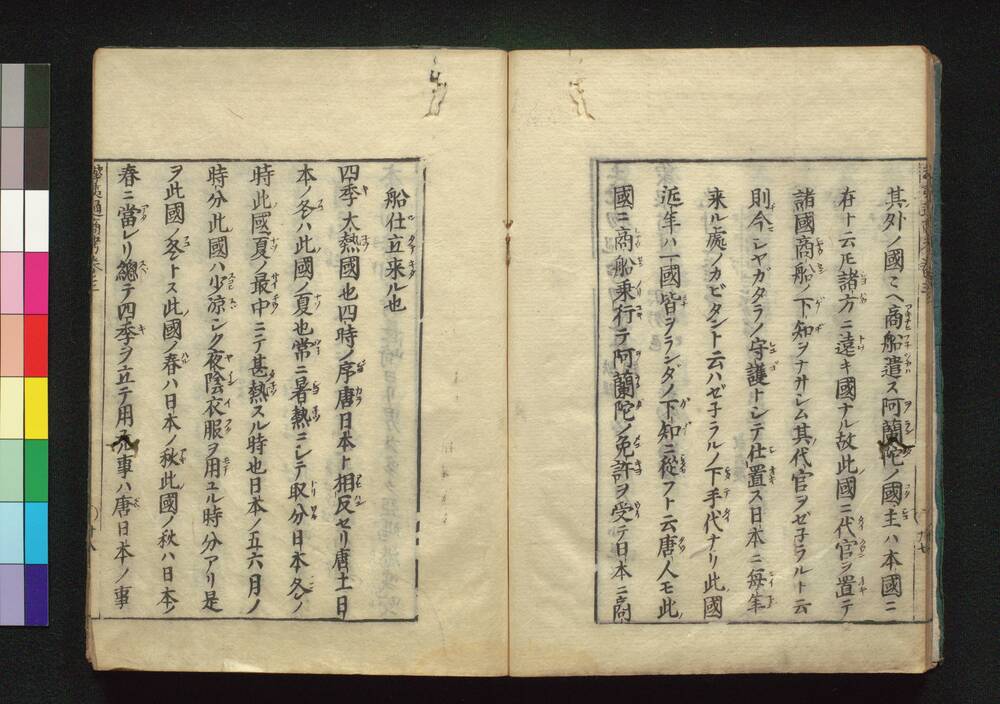 其外ノ國ミヘ商船遣ス阿蘭陀ノ國主ハ本國ニ
在ト云ㇹ諸方ニ遠キ國ナル故此國ニ代官ヲ置テ
諸國商船ノ下知ヲナサシム其代官ヲゼ子ラルト云
則今シヤガタラノ守護トシテ仕置ス日本ニ毎年
来ル處ノカビタント云ハゼ子ラルノ下手代ナリ此國
近年ハ一國皆ヲランダノ下知ニ從フト云唐人モ此
國ニ商船乗行テ阿蘭陀ノ免許ヲ受テ日本ニ商
船仕立来ル也
四季大熱國也四時ノ序唐日本ト相反セリ唐土日
本ノ冬ハ此國ノ夏也常ニ暑熱ニシテ取分日本冬ノ
時此國夏ノ最中ニテ甚熱スル時也日本ノ五六月ノ
時分此國ハ少涼シク夜陰衣服ヲ用ユル時分アリ是
ヲ此國ノ冬トス此國ノ春ハ日本ノ秋此國ノ秋ハ日本ノ
春ニ當レリ總テ四季ヲ立テ用ル事ハ唐日本ノ事
華夷通商考巻三